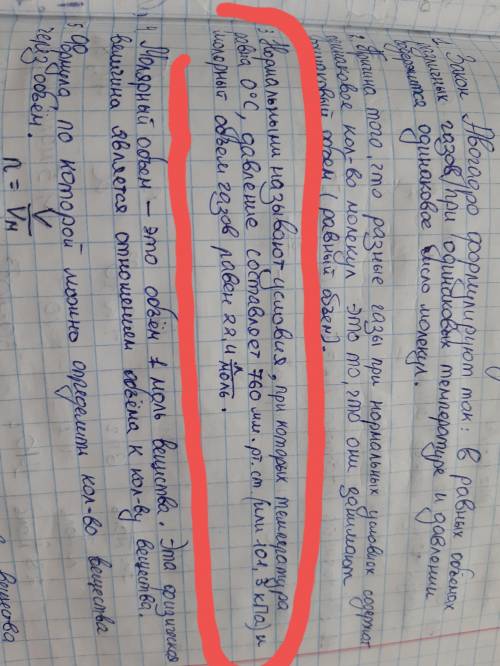 1. Закон Авогадро формулируют так: в равных объемах
различных газов при одинаковых температуре и давлении
содержится одинаковое число молекул.
2. Причина того, что разные газы при нормальных условиях содержат
одинаковое кол-во молекул это то, что они занимают
одинаковый объем (равный объем).
3. Нормальными называют условия, при которых температура
равна 0°С, давление составляет 760 мм. рт. ст (или 101,3 кПа) и
молярный объем газов равен 22,4 л/моль.
4 Молярный объем – это объём 1 моль вещества. Эта физическая
величина является отношением объёма к кол-ву вещества.
5 Формула, по которой можно определить кол-во вещества
через объём.
n = V/Vм
вещества